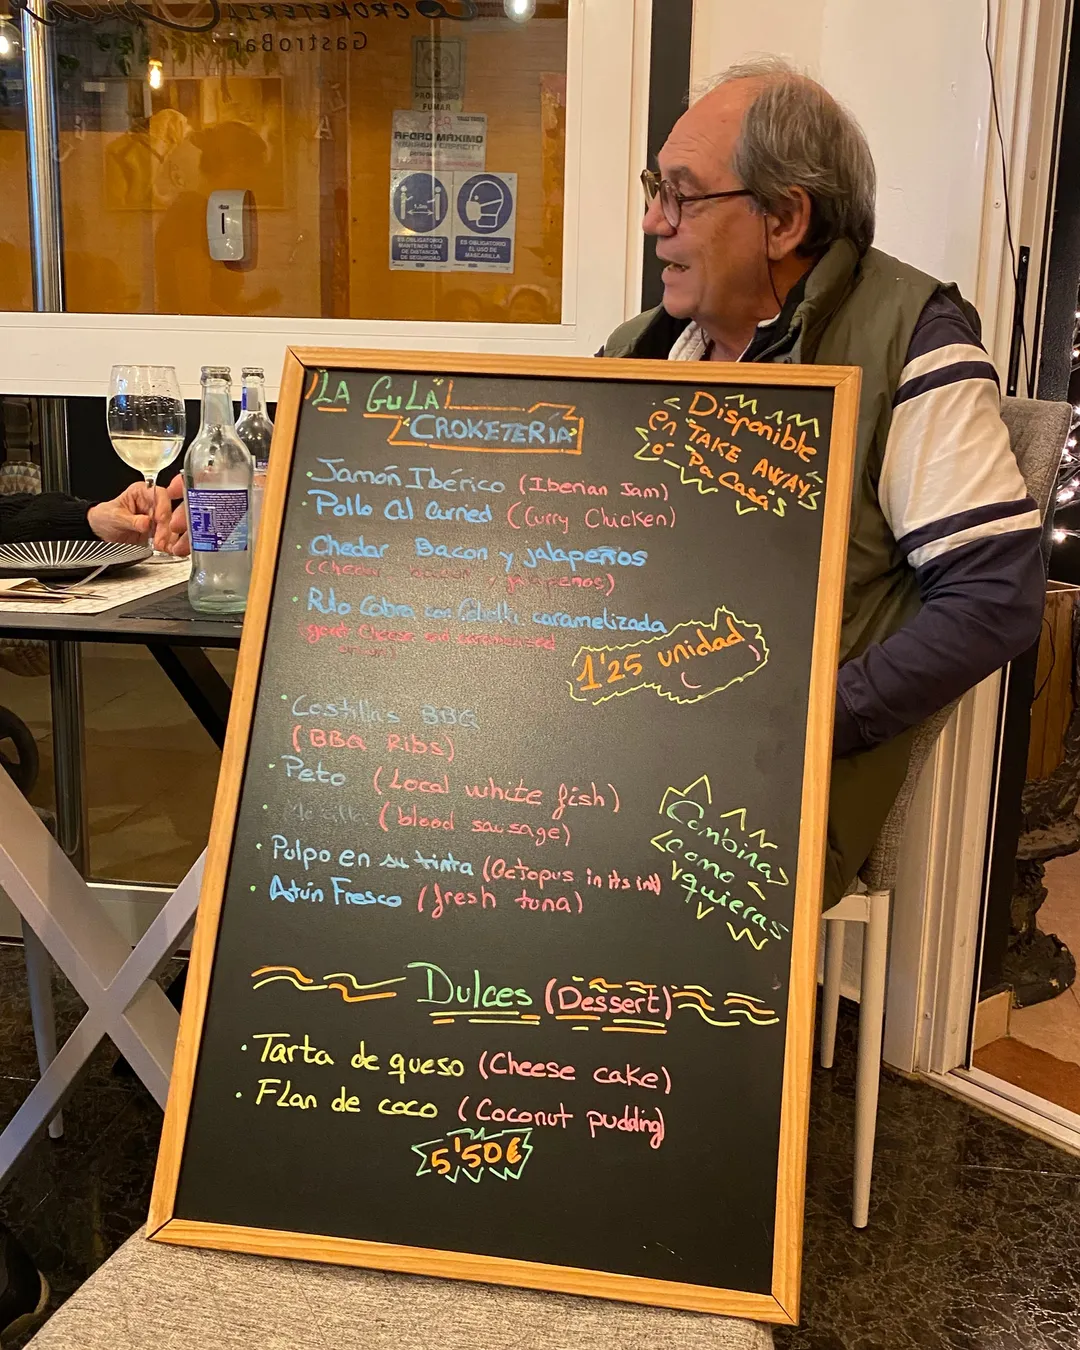 CROKETERIA
GastroBar
FUMAR
AFORO MÁXIMO
ES OBLIGATORIO
MANTENER 1,5M
DE DISTANCIA
DE SEGURIDAD
ES OBLIGATORIO
EL USO DE
MASCARILLA
"LA GULA"
CROKETERIA
Disponible
en TAKE AWAY
o Pa Casa's
· Jamón Ibérico (Iberian Jam)
· Pollo al Curried (Curry Chicken)
· Chedar Bacon y jalapeños
(Chedar, bacon y jalapenos)
· Rulo Cabra con Cebolla caramelizada
goat cheese and caramelised
onion)
1'25 unidad
· Costillas BBQ
(BBQ Ribs)
· Peto (Local white fish)
· Morcilla (blood sausage)
· Pulpo en su tinta (Octopus in its ink)
· Atún Fresco (fresh tuna)
Combina
como
quieras
Dulces (Dessert)
· Tarta de queso (Cheese cake)
· Flan de coco (Coconut pudding)
5'50€